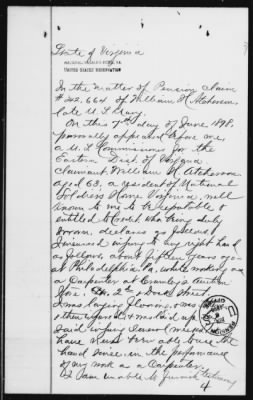 State of Virginia
NATIONAL SOLDIERS HOME, VA.
UNITED STATES RESERVATION
In the matter of Pension claim
# 242,664 of William H Atcherson
late U.S. Navy.
On this 7th day of June 1898.
personally appeared before me,
a U.S. Commissioner for the
Eastern Dist. of Virginia,
claimant, William H. Atcherson
aged 63, a resident of National
Soldiers Home Virginia, well
known to me to be reputable &
entitled to credit, who being duly
sworn, declares as follows,
I received injury to my right hand
as follows, about fifteen years ago
at Philadelphia Pa, while working as
a Carpenter at
2 Broad Street
I was laying flooring,
& was laid up
said injury I never
have been able to use the
hand since in the performance
of my work as a Carpenter,
I am unable to furnish testimony
4